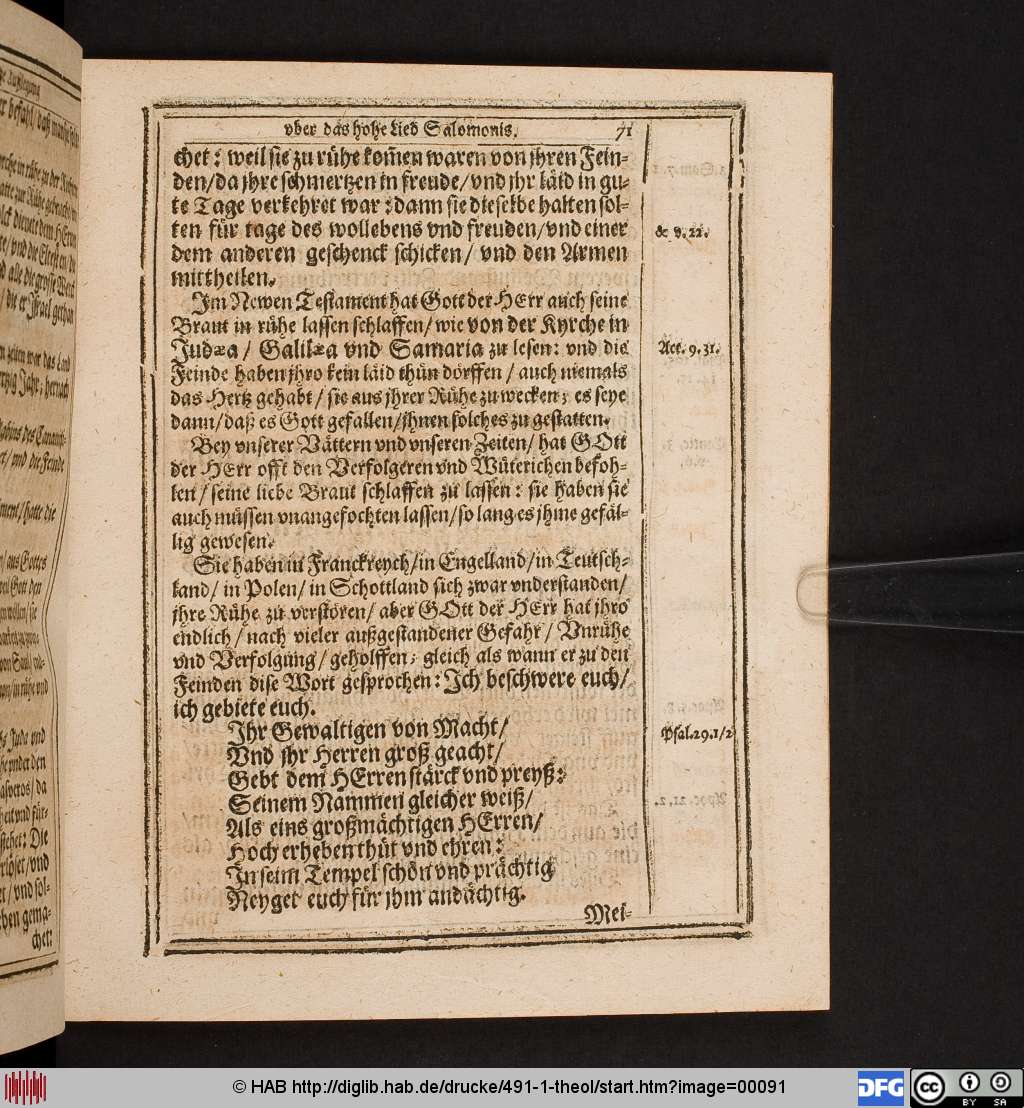 vber das hohe Lied Salomonis. 71
chet: weil sie zu rühe kom̃en waren von jhren Fein-
den/da jhre schmertzen in freude/vnd jhr läid in gu-
te Tage verkehret war: dann sie dieselbe halten sol-
ten für tage des wollebens vnd freuden/vnd einer
& 9. 22.
dem anderen geschenck schicken/ vnd den Armen
mittheilen.
Im Newen Testament hat Gott der HErr auch seine
Braut in rühe lassen schlaffen/wie von der Kyrche in
Judæa/ Galilæa vnd Samaria zu lesen: vnd die
Act. 9. 31.
Feinde haben jhro kein läid thün dörffen/auch niemals
das Hertz gehabt/ sie aus jhrer Rühe zu wecken; es seye
dann/daß es Gott gefallen/jhnen solches zu gestatten.
Bey vnserer Vättern vnd vnseren Zeiten/ hat GOtt
der HErr offt den Verfolgeren vnd Wüterichen befoh-
len/ seine liebe Braut schlaffen zu lassen: sie haben sie
auch müssen vnangefochten lassen/so lang es jhme gefäl-
lig gewesen.
Sie haben in Franckreych/in Engelland/in Teutsch-
land/ in Polen/ in Schottland sich zwar vnderstanden/
jhre Rühe zu verstören/ aber GOtt der HErr hat jhro
endlich/ nach vieler außgestandener Gefahr/ Vnrühe
vnd Verfolgung/ geholffen; gleich als wann er zu den
Feinden dise Wort gesprochen: Ich beschwere euch/
ich gebiete euch.
Ihr Gewaltigen von Macht/
Psal.29.1/2
Vnd jhr Herren groß geacht/
Gebt dem HErren stärck vnd preyß:
Seinem Nammen gleicher weiß/
Als eins großmächtigen HErren/
Hoch erheben thüt vnd ehren:
In seim Tempel schön vnd prächtig
Neyget euch für jhm andächtig.
Mei-
© HAB http://diglib.hab.de/drucke/491-1-theol/start.htm?image=00091
DFG
cc BY SA